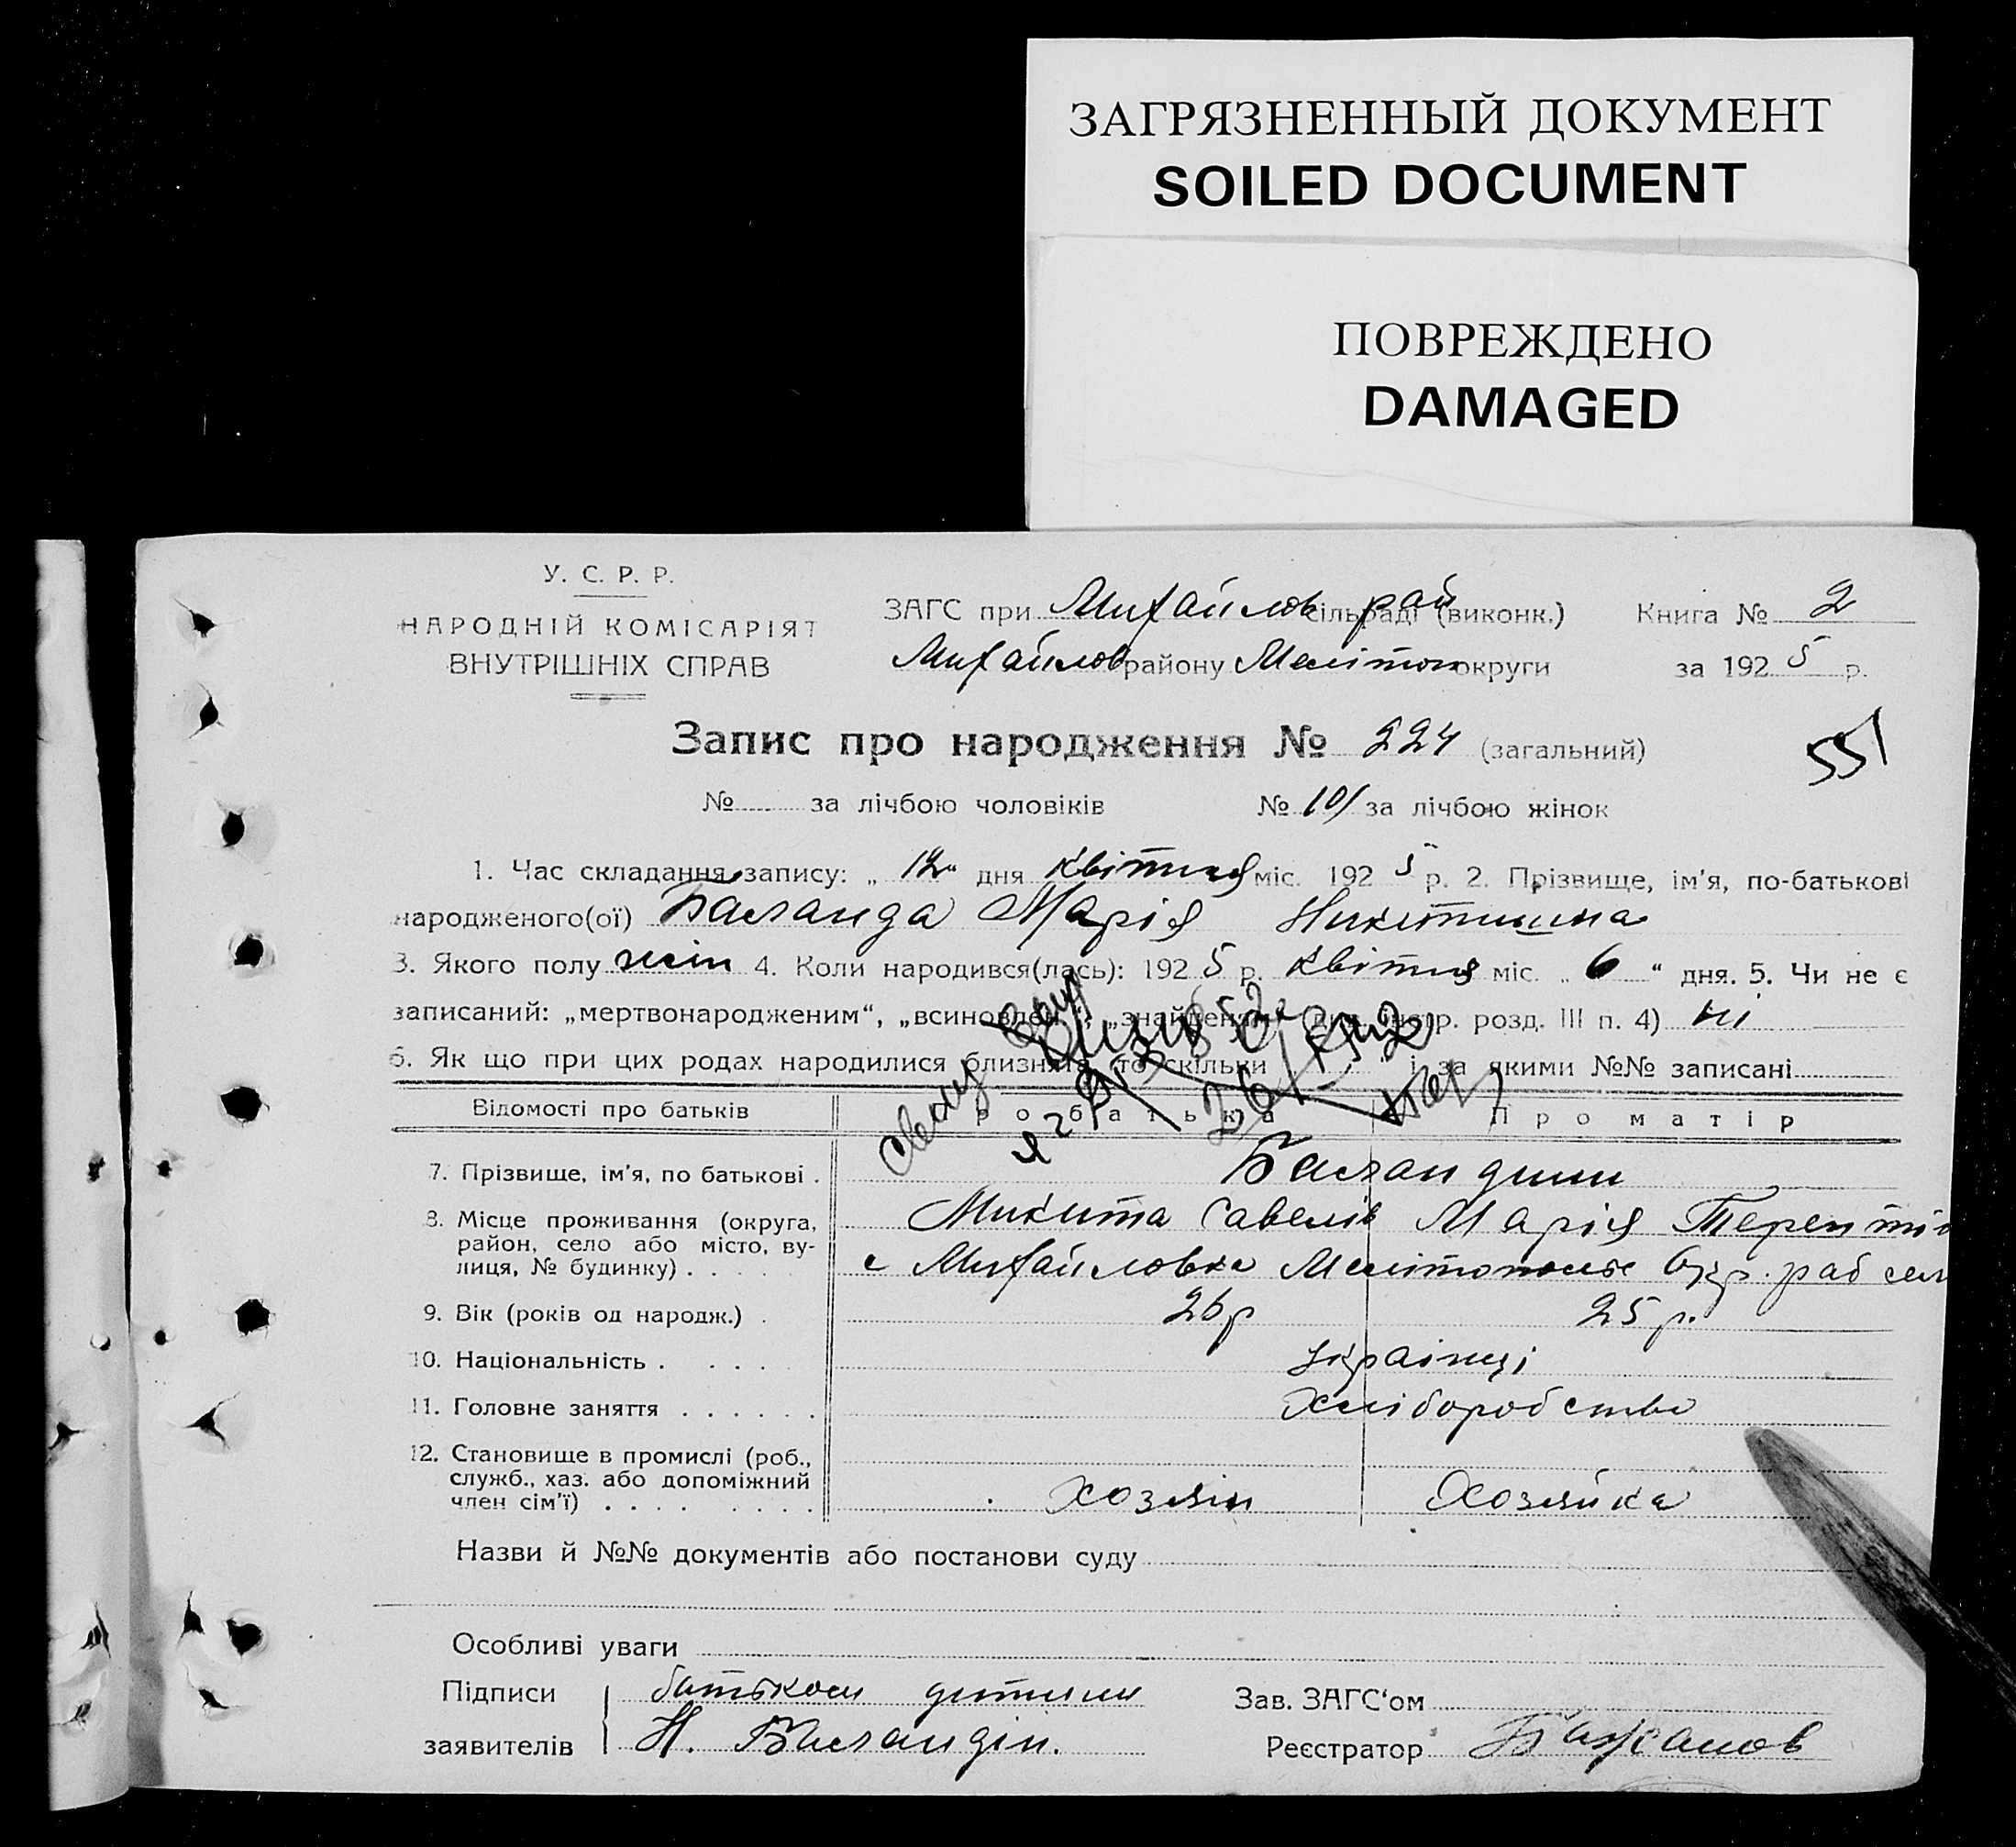 ЗАГРЯЗНЕННЫЙ ДОКУМЕНТ
SOILED DOCUMENT
ПОВРЕЖДЕНО
DAMAGED
У. С. Р. Р.
НАРОДНІЙ КОМІСАРІЯТ
ВНУТРІШНІХ СПРАВ
ЗАГС при Михайлов сільраді (виконк.) рай
Михайлов району Мелітоп округи
Книга № 2
за 1925 р.
Запис про народження № 224 (загальний)
551
№ за лічбою чоловіків № 101 за лічбою жінок
1. Час складання запису: „12“ дня квітня міс. 1925 р. 2. Прізвище, ім’я, по-батькові
народженого(ої) Баланда Марія Никитишна
3. Якого полу жін 4. Коли народився(лась): 1925 р. квітня міс. „6“ дня. 5. Чи не є
записаний: „мертвонародженим“, „всиновлен“, „знайденим“ (див. інстр. розд. III п. 4) ні
6. Як що при цих родах народилися близнята, то скільки і за якими №№ записані
Відомості про батьків Про батька Про матір
7. Прізвище, ім’я, по батькові . Баландини
Микита Савелів Марія Терентів
8. Місце проживання (округа,
район, село або місто, ву-
лиця, № будинку) . . . . . с Михайловка Мелітопольск Окр. раб сел
9. Вік (років од народж.) . 26 р 25 р.
10. Національність . . . . українці
11. Головне заняття . . . . . . Хліборобство
12. Становище в промислі (роб.,
служб., хаз. або допоміжний
член сім’ї) . . . . . . . . хозяїн Хозяйка
Назви й №№ документів або постанови суду
Особливі уваги
Підписи батьком дитини
заявителів Н. Баландін.
Зав. ЗАГС‘ом
Реєстратор Бажанов